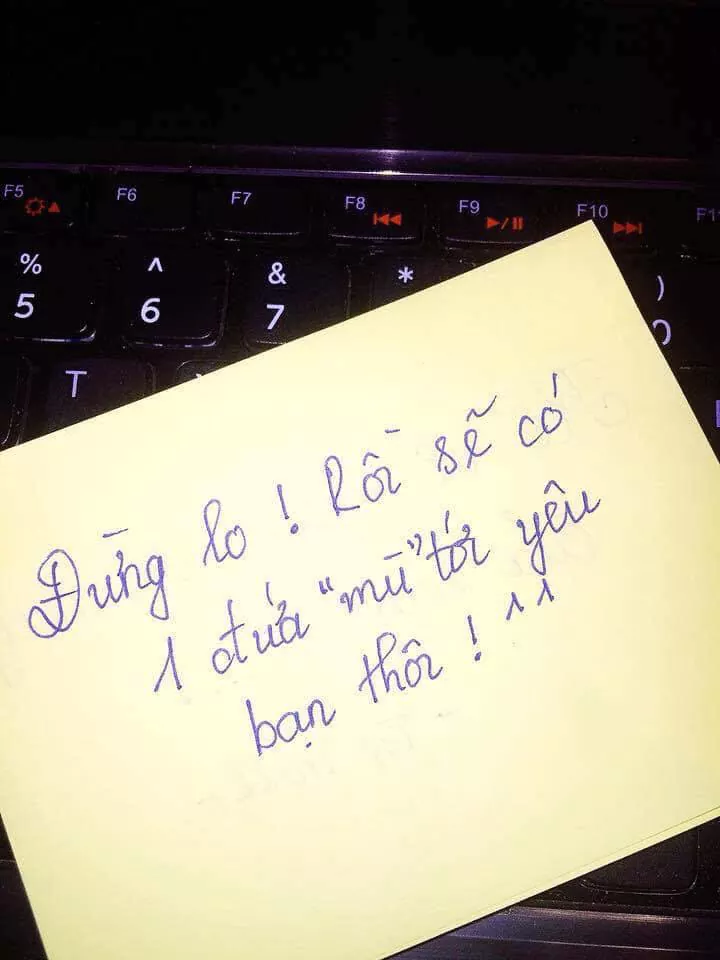 F5 F6 F7 F8 F9 F10 F1
% ^ & * )
5 6 7
T
Đừng lo ! Rồi sẽ có
1 đứa "mù" tới yêu
bạn thôi ! ^^